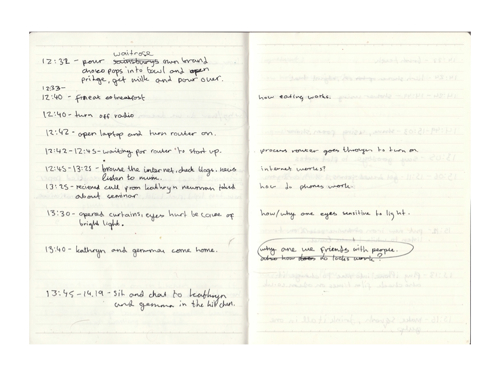 waitrose
12:32 - pour sainsburys own brand
choco pops into bowl and open
fridge, get milk and pour over.
12:33 -
12:40 - eat breakfast
how eating works.
12:40 - turn off radio
12:42 - open laptop and turn router on.
12:42 - 12:45 - waiting for router to start up.
process router goes through to turn on
12:45 - 13:21 - browse the internet, check blogs, news
internet works?
listen to music.
13:25 - recieve call from kathryn newman talked
how do phones work
about seminar
13:30 - opened curtains, eyes hurt because of
how/why are eyes sensitive to light.
bright light.
13:40 - kathryn and gemma come home.
why are we friends with people.
also how does do locks work?
13:45 - 14.19 - Sit and chat to kathryn
and gemma in the kitchen.